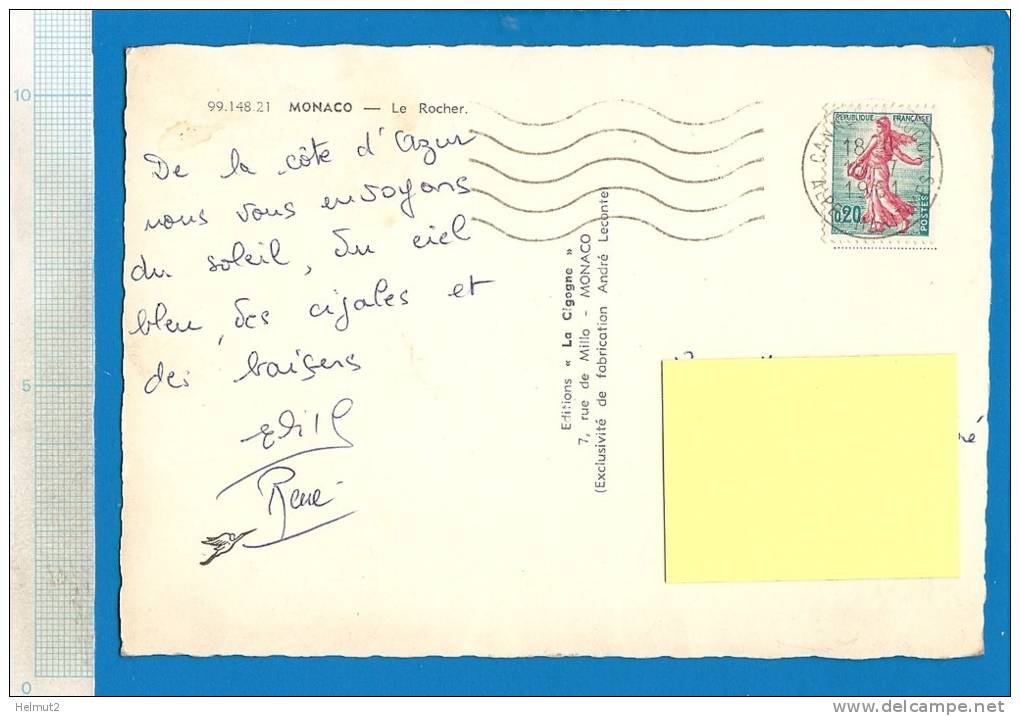 10
5
0
99.148.21 MONACO — Le Rocher.
De la côte d'Azur
nous vous envoyons
du soleil, du ciel
bleu, des cigales et
des baisers
René
Editions « La Cigogne »
7, rue de Millo - MONACO
(Exclusivité de fabrication André Leconte)
REPUBLIQUE FRANÇAISE
0,20
POSTES
18
1961
né
Helmut2
www.delcampe.net